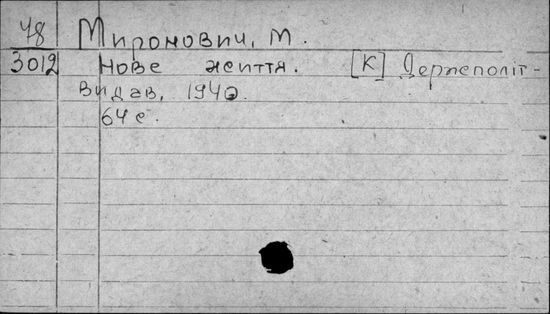 48 Миронович, М.
3012 Нове життя. [К] Держполіт-
видав, 1940.
64 с.